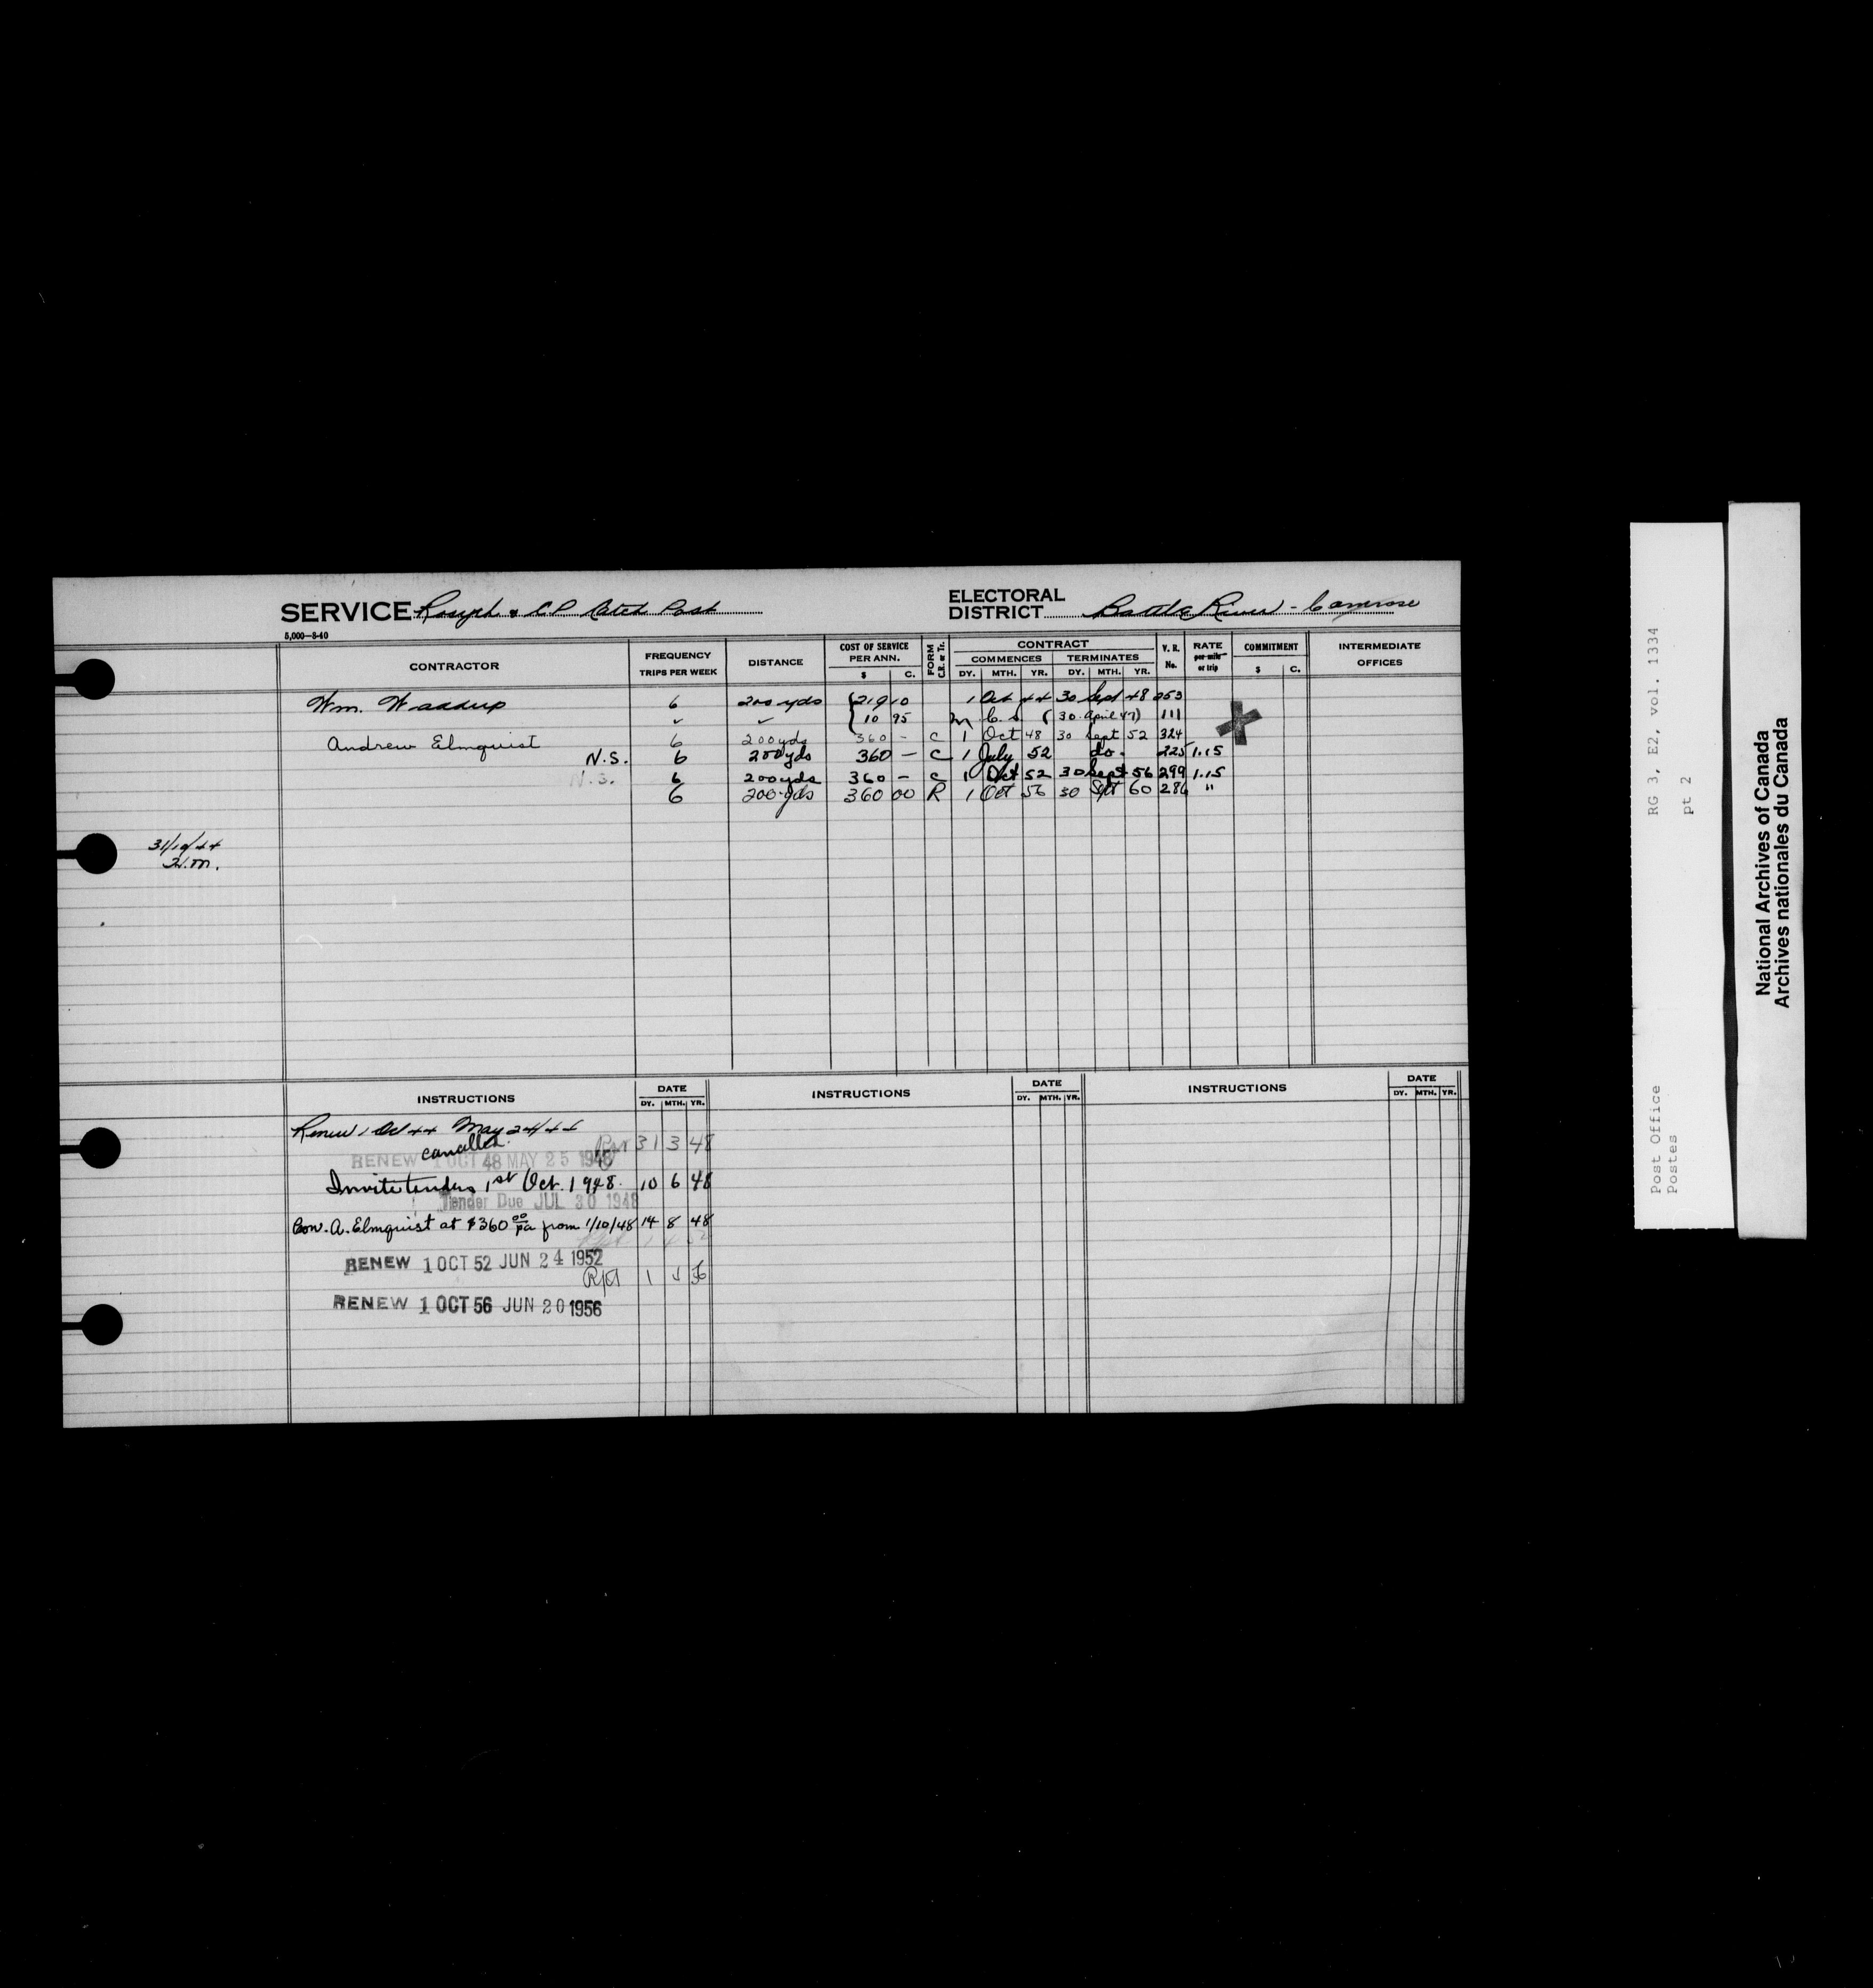 SERVICE & CP Catch Post
ELECTORAL DISTRICT Battle River - Camrose
5,000-8-40
CONTRACTOR FREQUENCY TRIPS PER WEEK DISTANCE COST OF SERVICE PER ANN. $ C. FORM C.R. or Tr. CONTRACT COMMENCES DY. MTH. YR. TERMINATES DY. MTH. YR. V. R. No. RATE per mile or trip COMMITMENT $ C. INTERMEDIATE OFFICES
Wm. Waddup 6 200 yds 219 10 1 Oct 44 30 Sept 48 253
10 95 (30 April 47) 111
Andrew Elmquist 6 200yds 360 - C 1 Oct 48 30 Sept 52 324
N.S. 6 200yds 360 - C 1 July 52 do. 225 1.15
N.S. 6 200yds 360 - C 1 Oct 52 30 Sept 56 299 1.15
6 200 yds 360 00 R 1 Oct 56 30 Sept 60 286 "
31/10/44
INSTRUCTIONS DATE DY. MTH. YR. INSTRUCTIONS DATE DY. MTH. YR. INSTRUCTIONS DATE DY. MTH. YR.
Renew 1 Oct 44 May 24/44
cancelled. 31 3 48
RENEW 1 OCT 48 MAY 25 1948
Invite tenders 1st Oct. 1948. 10 6 48
Tender Due JUL 30 1948
Con. A. Elmquist at $360 00 pa from 1/10/48 14 8 48
RENEW 1 OCT 52 JUN 24 1952
1 5 56
RENEW 1 OCT 56 JUN 20 1956
Post Office RG 3, E2, vol. 1334
Postes pt 2
National Archives of Canada
Archives nationales du Canada